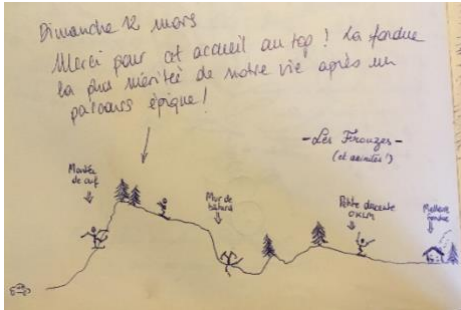 Dimanche 12 mars
Merci pour cet accueil au top ! La fondue
la plus méritée de notre vie après un
parcours épique !
- Les
(et
Montée
de
Mur de
Petite descente
OKLM
Meilleure
fondue